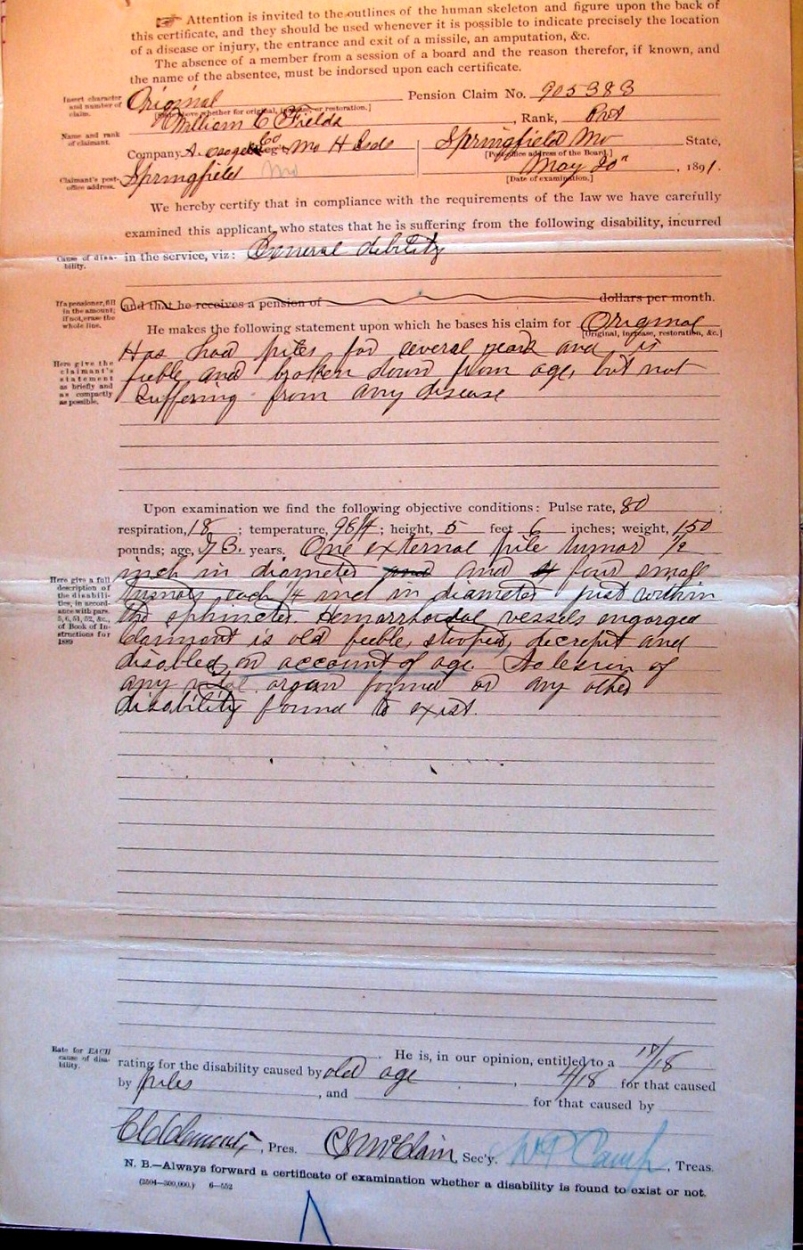 ☞ Attention is invited to the outlines of the human skeleton and figure upon the back of
this certificate, and they should be used whenever it is possible to indicate precisely the location
of a disease or injury, the entrance and exit of a missile, an amputation, &c.
The absence of a member from a session of a board and the reason therefor, if known, and
the name of the absentee, must be indorsed upon each certificate.
Insert character and number of claim.
Original Pension Claim No. 905383
[State whether for original, increase, or restoration.]
Name and rank of claimant.
William C Fields, Rank, Pvt
Company A. Osage Co Reg't Mo H Gds Springfield Mo State,
[Post-office address of the Board.]
Claimant's post-office address.
Springfield Mo May 20", 1891.
[Date of examination.]
We hereby certify that in compliance with the requirements of the law we have carefully
examined this applicant, who states that he is suffering from the following disability, incurred
Cause of disability.
in the service, viz: General debility
If a pensioner, fill in the amount; if not, erase the whole line.
and that he receives a pension of dollars per month.
He makes the following statement upon which he bases his claim for Original
[Original, increase, restoration, &c.]
Here give the claimant's statement as briefly and as compactly as possible.
Has had piles for several years and is
feeble and broken down from age, but not
suffering from any disease
Upon examination we find the following objective conditions: Pulse rate, 80;
respiration, 18; temperature, 98/4; height, 5 feet 6 inches; weight, 150
pounds; age, 73. years. One external pile tumor 1/2
Here give a full description of the disabilities, in accordance with pars. 5, 6, 51, 52, &c., of Book of Instructions for 1889
inch in diameter and and 4 four small
tumors each 1/4 inch in diameter just within
the sphincter. Hemorrhoidal vessels engorged
Claimant is old feeble, stooped, decrepit and
disabled on account of age. No lesion of
any vital organ found or any other
disability found to exist.
Rate for EACH cause of disability.
He is, in our opinion, entitled to a /18
rating for the disability caused by old age, 4/18 for that caused
by piles, and for that caused by
, Pres. McClain, Sec'y. Camp, Treas.
N. B.—Always forward a certificate of examination whether a disability is found to exist or not.
6—552